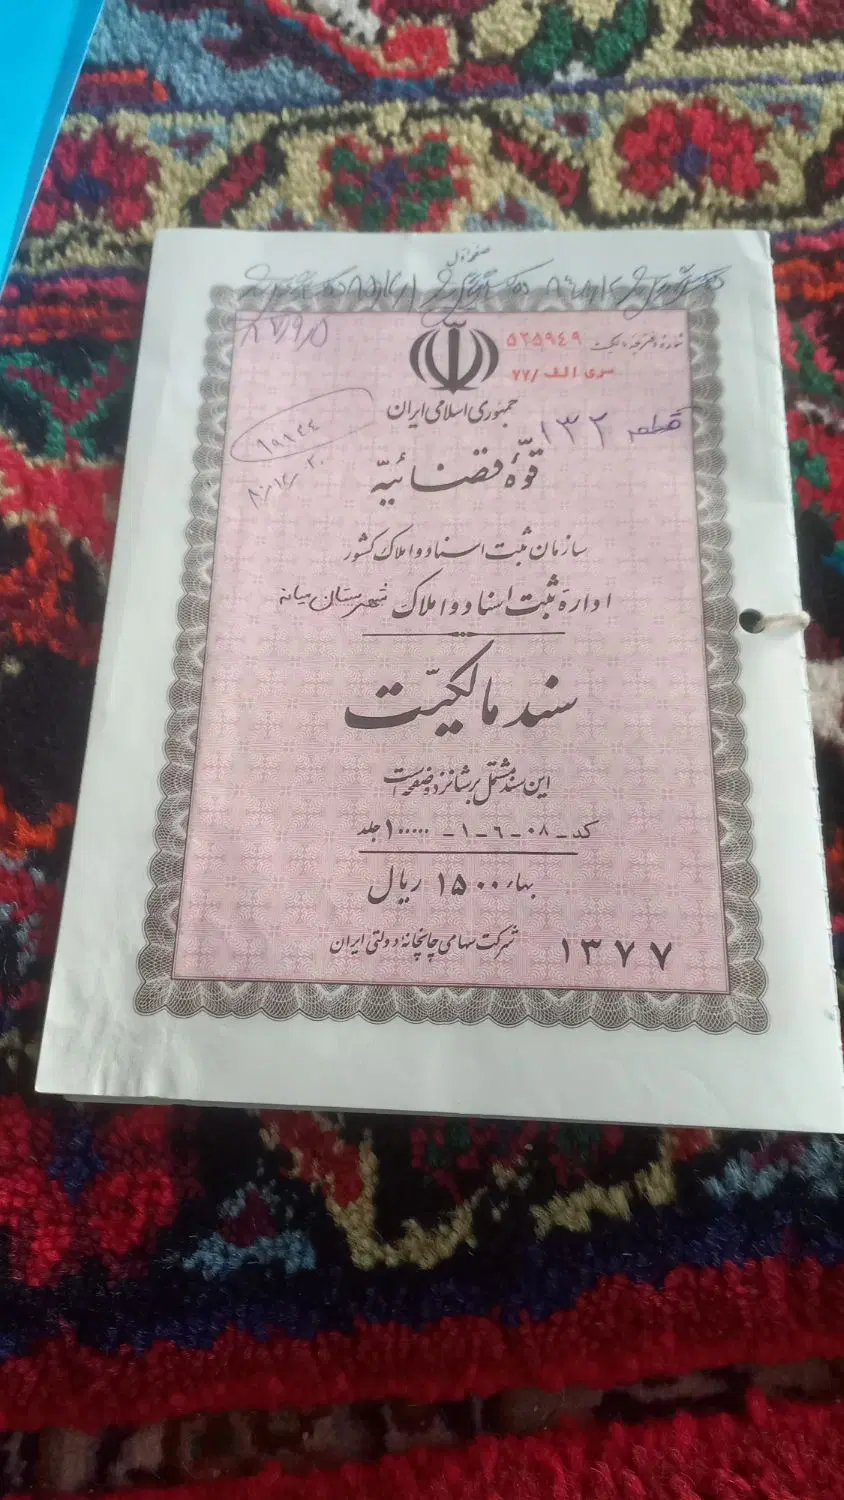 صفحه اول
شماره دفترچه مالکیت ۵۲۵۹۴۹
سری الف /۷۷
جمهوری اسلامی ایران
قطعه ۱۳۲
۱۹۱۴۴
۸۰/۱۲/۲۰
قوّهٔ قضائیّه
سازمان ثبت اسناد و املاک کشور
ادارهٔ ثبت اسناد و املاک شهرستان میانه
سند مالکیّت
این سند مشتمل بر شانزده صفحه است
کد ـ ۰۸ ـ ۶ ـ ۱ ـ ۱۰۰۰۰۰ جلد
بهاء ۱۵۰۰ ریال
۱۳۷۷ شرکت سهامی چاپخانهٔ دولتی ایران